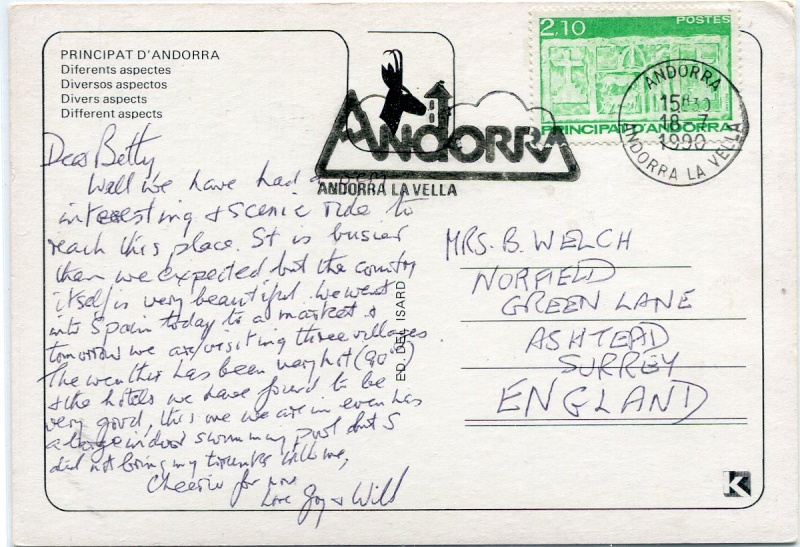 PRINCIPAT D'ANDORRA
Diferents aspectes
Diversos aspectos
Divers aspects
Different aspects
2,10 POSTES
PRINCIPAT D'ANDORRA
ANDORRA
15H30
18-7
1990
ANDORRA LA VELLA
ANDORRA
ANDORRA LA VELLA
Dear Betty
Well we have had a very
interesting & scenic ride to
reach this place. It is busier
than we expected but the country
itself is very beautiful. We went
into Spain today to a market &
tomorrow we are visiting three villages
The weather has been very hot (90°)
& the hotels we have found to be
very good, this one we are in even has
a large indoor swimming pool but I
did not bring my trunks with me,
Cheerio for now
Love Joy & Wilf
ED. DEL ISARD
MRS. B. WELCH
NORFIELD
GREEN LANE
ASHTEAD
SURREY
ENGLAND
K